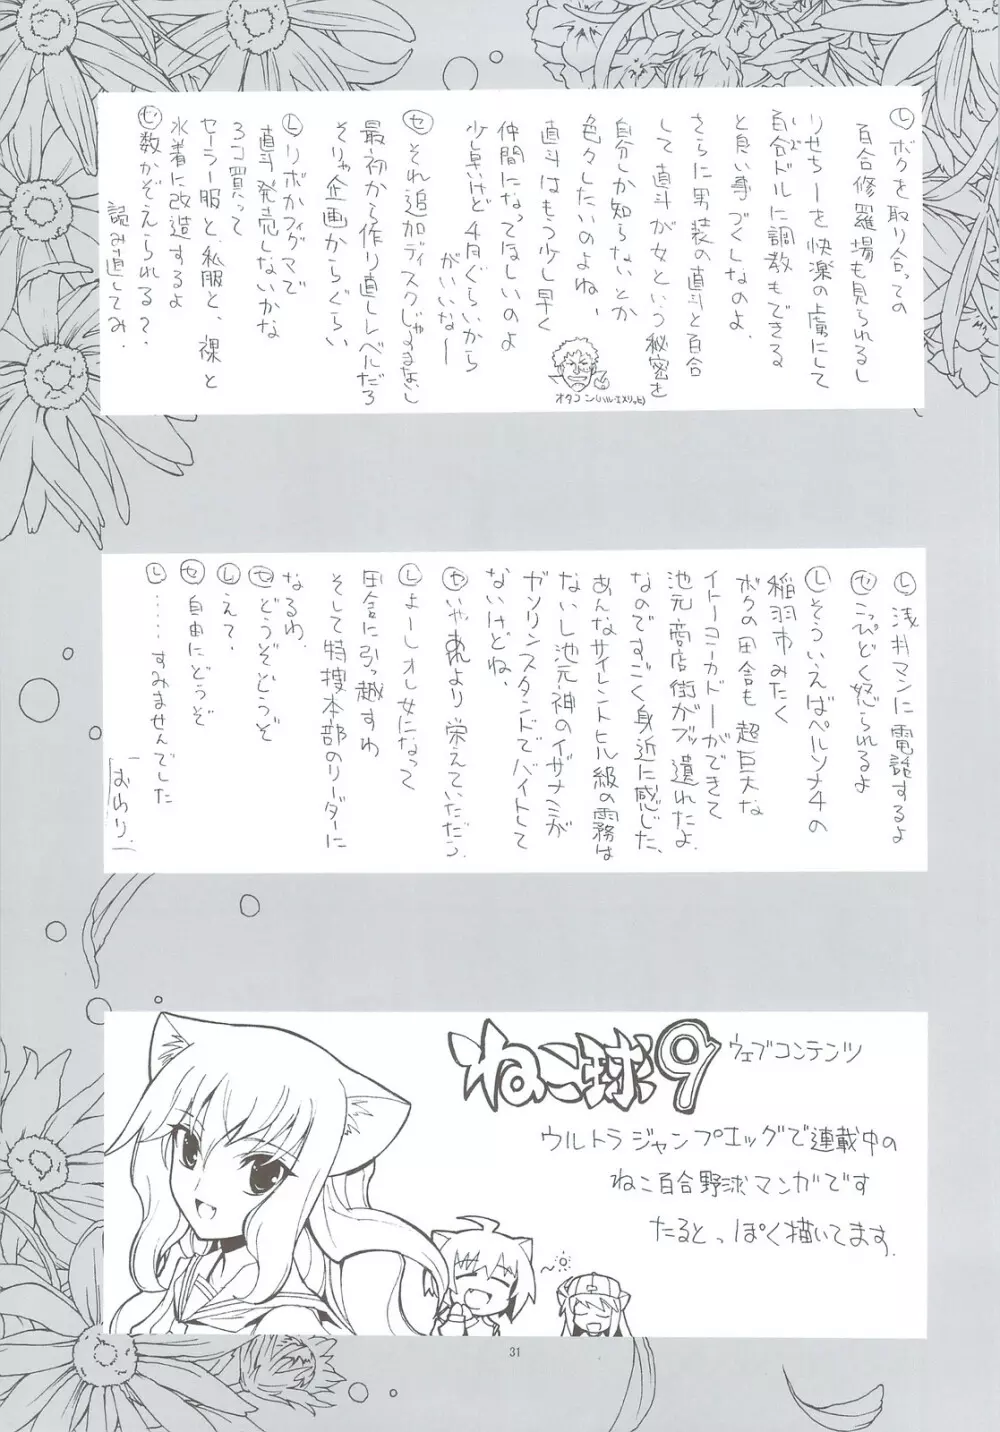 Ⓛボクを取り合っての
百合修羅場も見られるし
りせちーを快楽の虜にして
百合ドルに調教もできる
と良い事づくしなのよ.
さらに男装の直斗と百合
して直斗が女という秘密を
自分しか知らないとか
色々したいのよね、
直斗はもう少し早く
仲間になってほしいのよ
少し臭いけど4月ぐらいから
がいいな〜
オタコン(ハル・エメリッヒ)
セそれ追加ディスクじゃすまないし
最初から作り直しレベルだろ
そりゃ企画からぐらい
Ⓛリボかフィグマで
直斗発売しないかな
3コ買って
セーラー服と、私服と、裸と
水着に改造するよ
セ数かぞえられる？
読み直してみ.
Ⓛ浅井マンに電話するよ
セこっぴどく怒られるよ
Ⓛそういえばペルソナ4の
稲羽市みたく
ボクの田舎も超巨大な
イトーコニカドーができて
池元商店街がブッ遺れたよ
なのですごく身近に感じた、
あんなサイレントヒル級の霧は
ないし池元神のイザナミが
ガソリンスタンドでバイトして
ないけどね、
ヤいやあれより栄えていただろ
Ⓛよーしオレ女になって
田舎に引っ越すわ
そして特捜本部のリーダーに
なるわ.
セどうぞどうぞ
Ⓛえて.
セ自由にどうぞ
Ⓛ……すみませんでした
「おわり.」
ねこ球9 ウェブコンテンツ
ウルトラジャンプエッグで連載中の
ねこ百合野球マンガです
たると、っぽく描いてます.
31